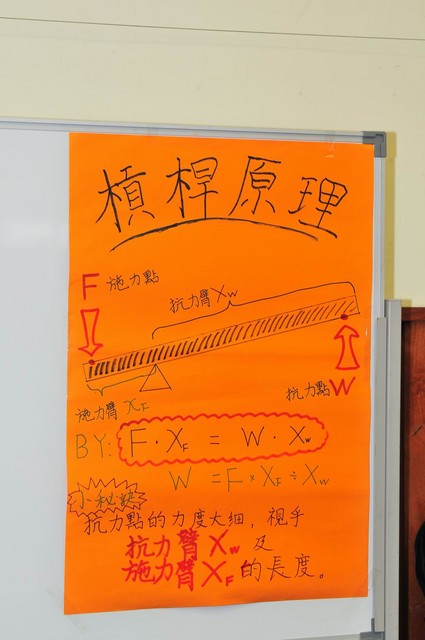 槓桿原理
F 施力點
抗力臂 Xw
抗力點W
施力臂 XF
BY: F·XF = W·Xw
W = F×XF÷Xw
小秘訣
抗力點的力度大細，視乎
抗力臂Xw 及
施力臂XF的長度。